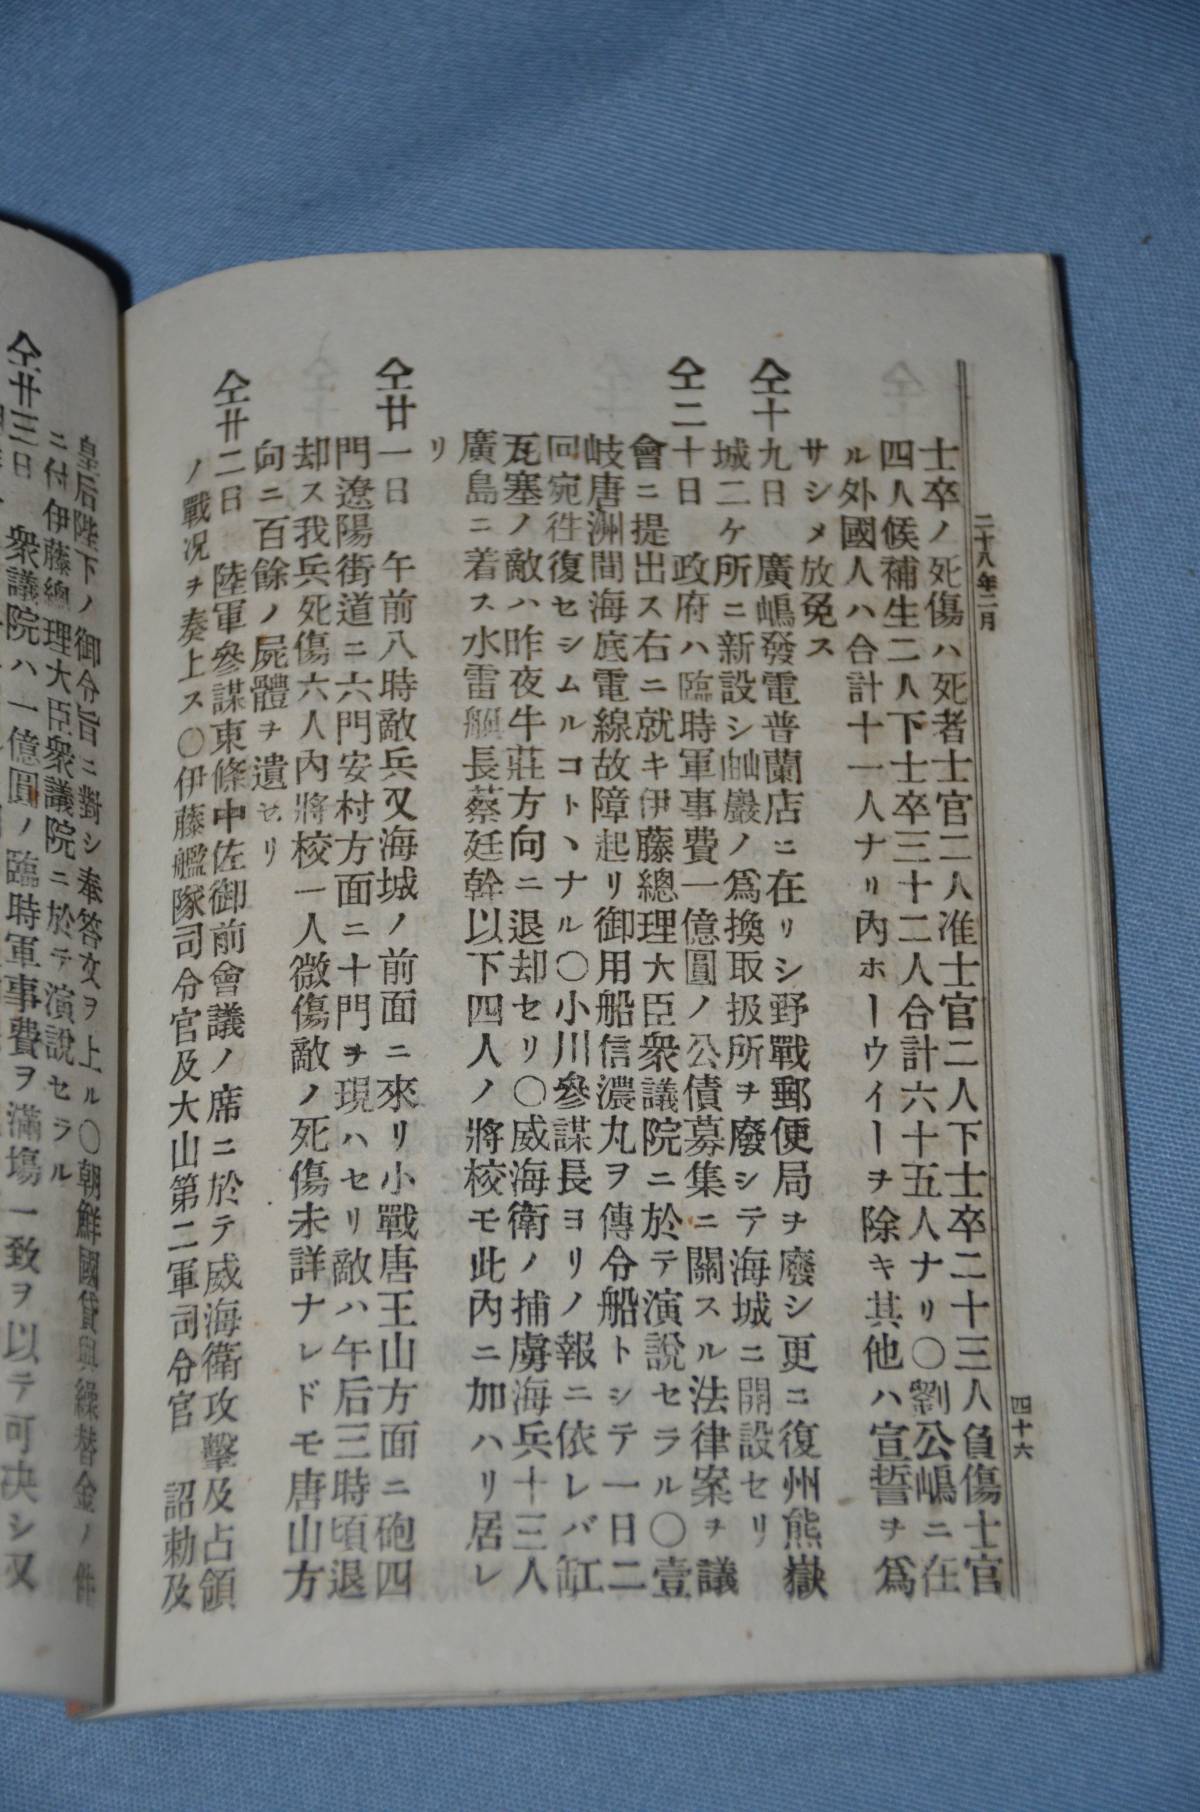 二十八年二月
四十六
士卒ノ死傷ハ死者士官二人准士官二人下士卒二十三人負傷士官
四人候補生二人下士卒三十二人合計六十五人ナリ〇劉公嶋ニ在
ル外國人ハ合計十一人ナリ內ホーウイーヲ除キ其他ハ宣誓ヲ爲
サシメ放免ス
仝十九日 廣嶋發電普蘭店ニ在リシ野戰郵便局ヲ廢シ更ニ復州熊嶽
城二ケ所ニ新設シ岫巖ノ爲換取扱所ヲ廢シテ海城ニ開設セリ
仝二十日 政府ハ臨時軍事費一億圓ノ公債募集ニ關スル法律案ヲ議
會ニ提出ス右ニ就キ伊藤總理大臣衆議院ニ於テ演說セラル〇壹
岐唐洲間海底電線故障起リ御用船信濃丸ヲ傳令船トシテ一日二
回宛徃復セシムルコトヽナル〇小川參謀長ヨリノ報ニ依レバ缸
瓦塞ノ敵ハ昨夜牛莊方向ニ退却セリ〇威海衛ノ捕虜海兵十三人
廣島ニ着ス水雷艇長蔡廷幹以下四人ノ將校モ此內ニ加ハリ居レ
リ
仝廿一日 午前八時敵兵又海城ノ前面ニ來リ小戰唐王山方面ニ砲四
門遼陽街道ニ六門安村方面ニ十門ヲ現ハセリ敵ハ午后三時頃退
却ス我兵死傷六人內將校一人微傷敵ノ死傷未詳ナレドモ唐山方
向ニ百餘ノ屍體ヲ遺セリ
仝廿二日 陸軍參謀東條中佐御前會議ノ席ニ於テ威海衛攻擊及占領
ノ戰况ヲ奏上ス〇伊藤艦隊司令官及大山第二軍司令官 詔勅及
皇后陛下ノ御令旨ニ對シ奉答文ヲ上ル〇朝鮮國貸與繰替金ノ件
ニ付伊藤總理大臣衆議院ニ於テ演說セラル
仝廿三日 衆議院ハ一億圓ノ臨時軍事費ヲ滿塲一致ヲ以テ可决シ又